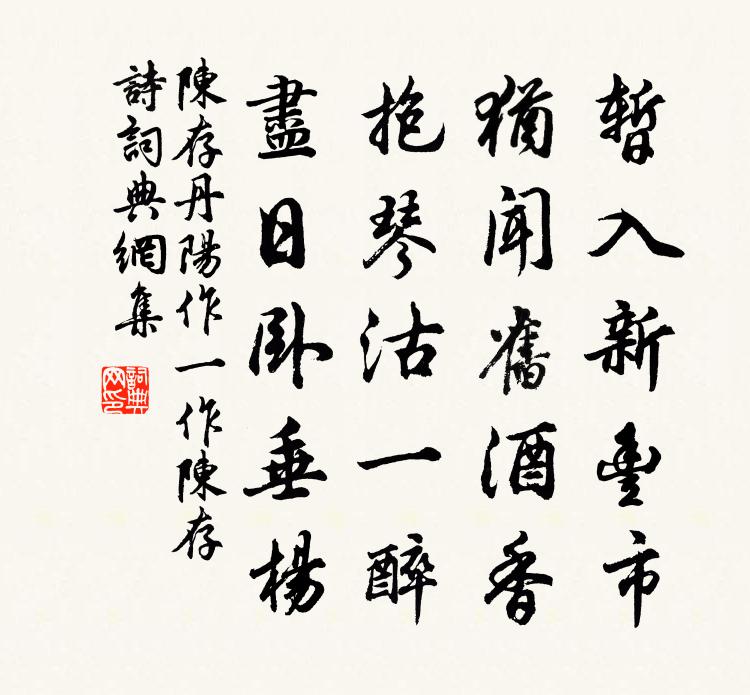 暫入新豐市
猶聞舊酒香
抱琴沽一醉
盡日卧垂楊
陳存丹陽作一作陳存
詩詞典網集
詞典
网印